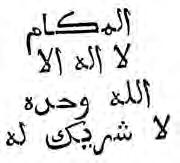 المكام
لا اله الا
الله وحده
لا شريك له